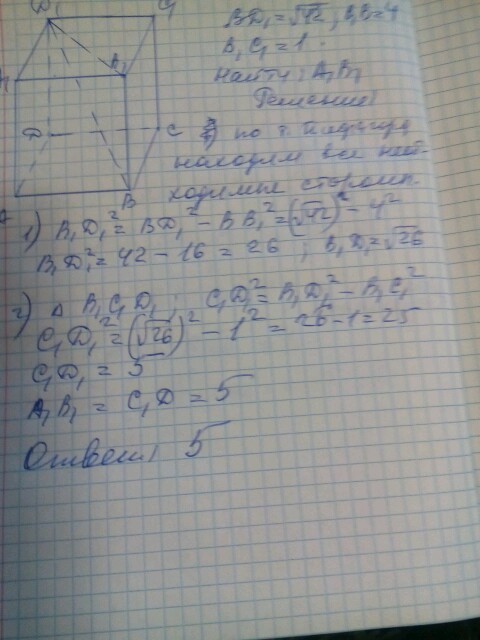 D₁ C₁
B₁
D C
B
BD₁ = √42, B₁B = 4
B₁C₁ = 1.
Найти: A₁B₁
Решение:
по т. Пифагора
находим все необ-
ходимые стороны.
1) B₁D₁² = BD₁² - BB₁² = (√42)² - 4²
B₁D₁² = 42 - 16 = 26 ; B₁D₁ = √26
2) △ B₁C₁D₁ ; C₁D₁² = B₁D₁² - B₁C₁²
C₁D₁² = (√26)² - 1² = 26 - 1 = 25
C₁D₁ = 5
A₁B₁ = C₁D = 5
Ответ: 5